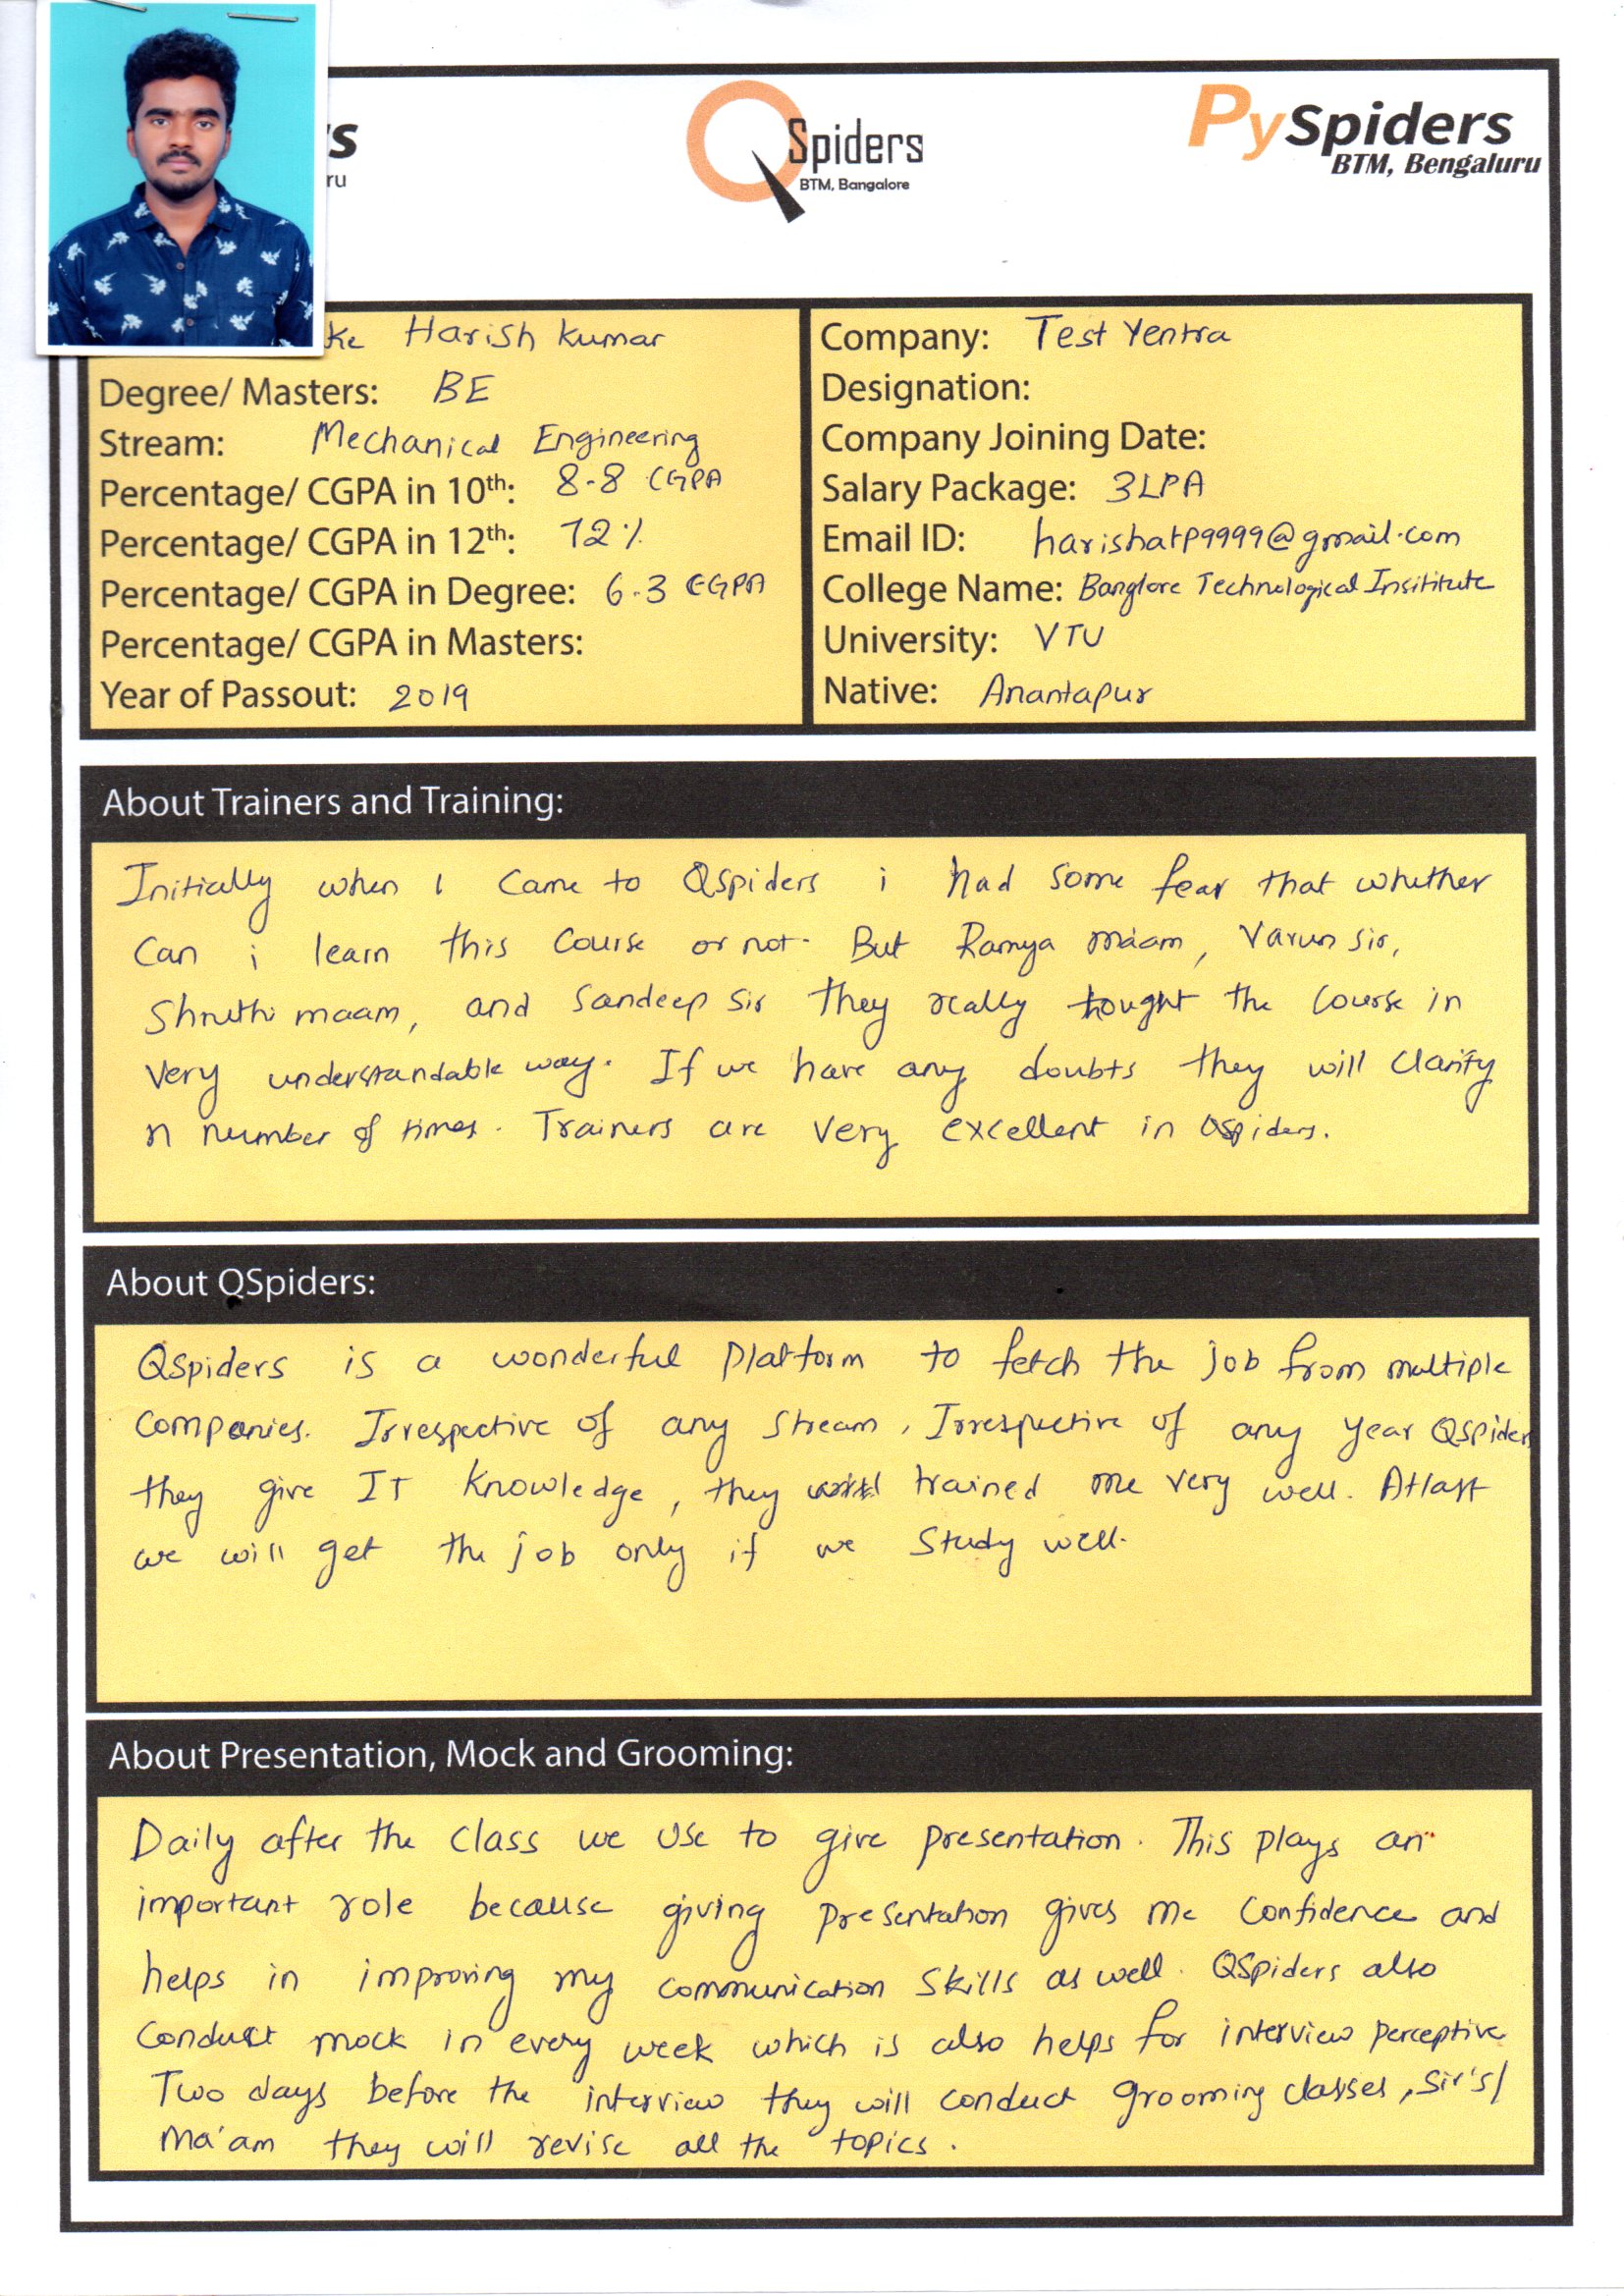 s
ru
QSpiders
BTM, Bangalore
PySpiders
BTM, Bengaluru
ke Harish Kumar
Degree/ Masters: BE
Stream: Mechanical Engineering
Percentage/ CGPA in 10th: 8-8 CGPA
Percentage/ CGPA in 12th: 72%
Percentage/ CGPA in Degree: 6.3 CGPA
Percentage/ CGPA in Masters:
Year of Passout: 2019
Company: Test Yentra
Designation:
Company Joining Date:
Salary Package: 3LPA
Email ID: harishatp9999@gmail.com
College Name: Banglore Technological Insititute
University: VTU
Native: Anantapur
About Trainers and Training:
Initially when I came to Qspiders i had some fear that whether
Can i learn this Course or not. But Ramya maam, Varun sir,
Shruthi maam, and Sandeep sir they really tought the Course in
very understandable way. If we have any doubts they will clarify
n number of times. Trainers are very excellent in Qspiders.
About QSpiders:
Qspiders is a wonderful platform to fetch the job from multiple
companies. Irrespective of any stream, Irrespective of any year Qspiders
they give IT Knowledge, they trained me very well. Atlast
we will get the job only if we study well.
About Presentation, Mock and Grooming:
Daily after the class we use to give presentation. This plays an
important role because giving presentation gives me confidence and
helps in improving my communication skills as well. QSpiders also
conduct mock in every week which is also helps for interview perceptive
Two days before the interview they will conduct grooming classes, Sir's/
Ma'am they will revise all the topics.